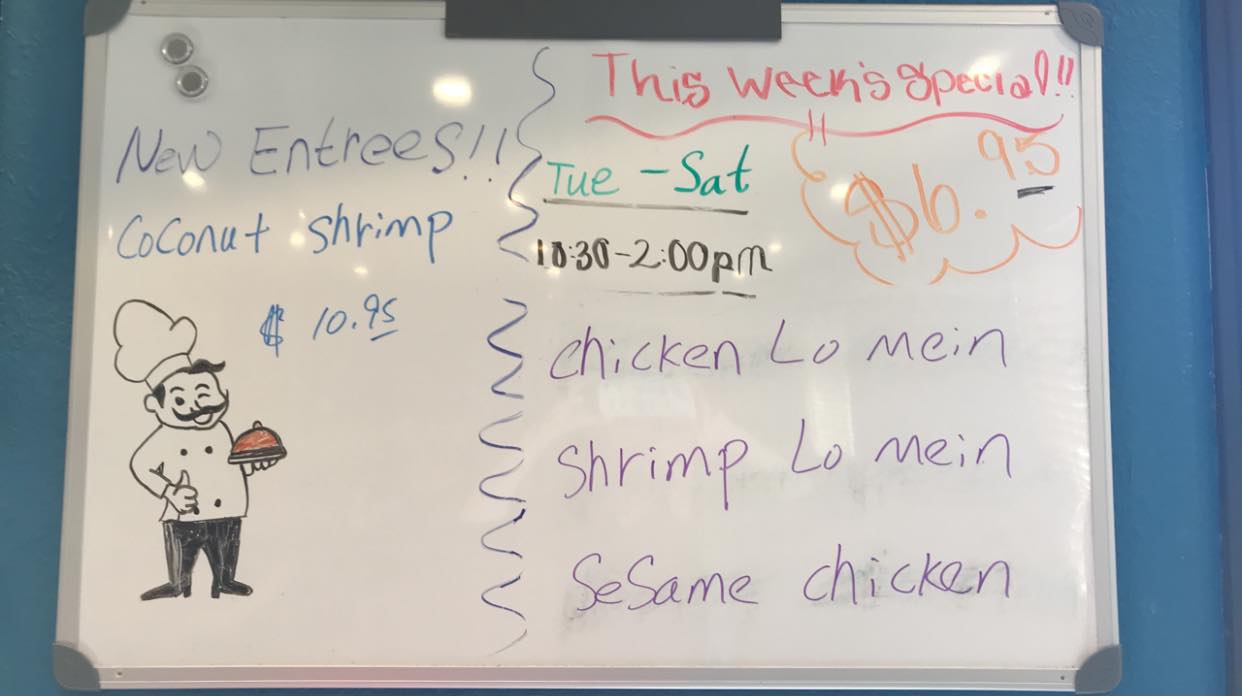 New Entrees!!
Coconut shrimp
$ 10.95
This Week's Special!!
Tue - Sat
$6.95
10:30-2:00pm
Chicken Lo mein
Shrimp Lo mein
SeSame chicken